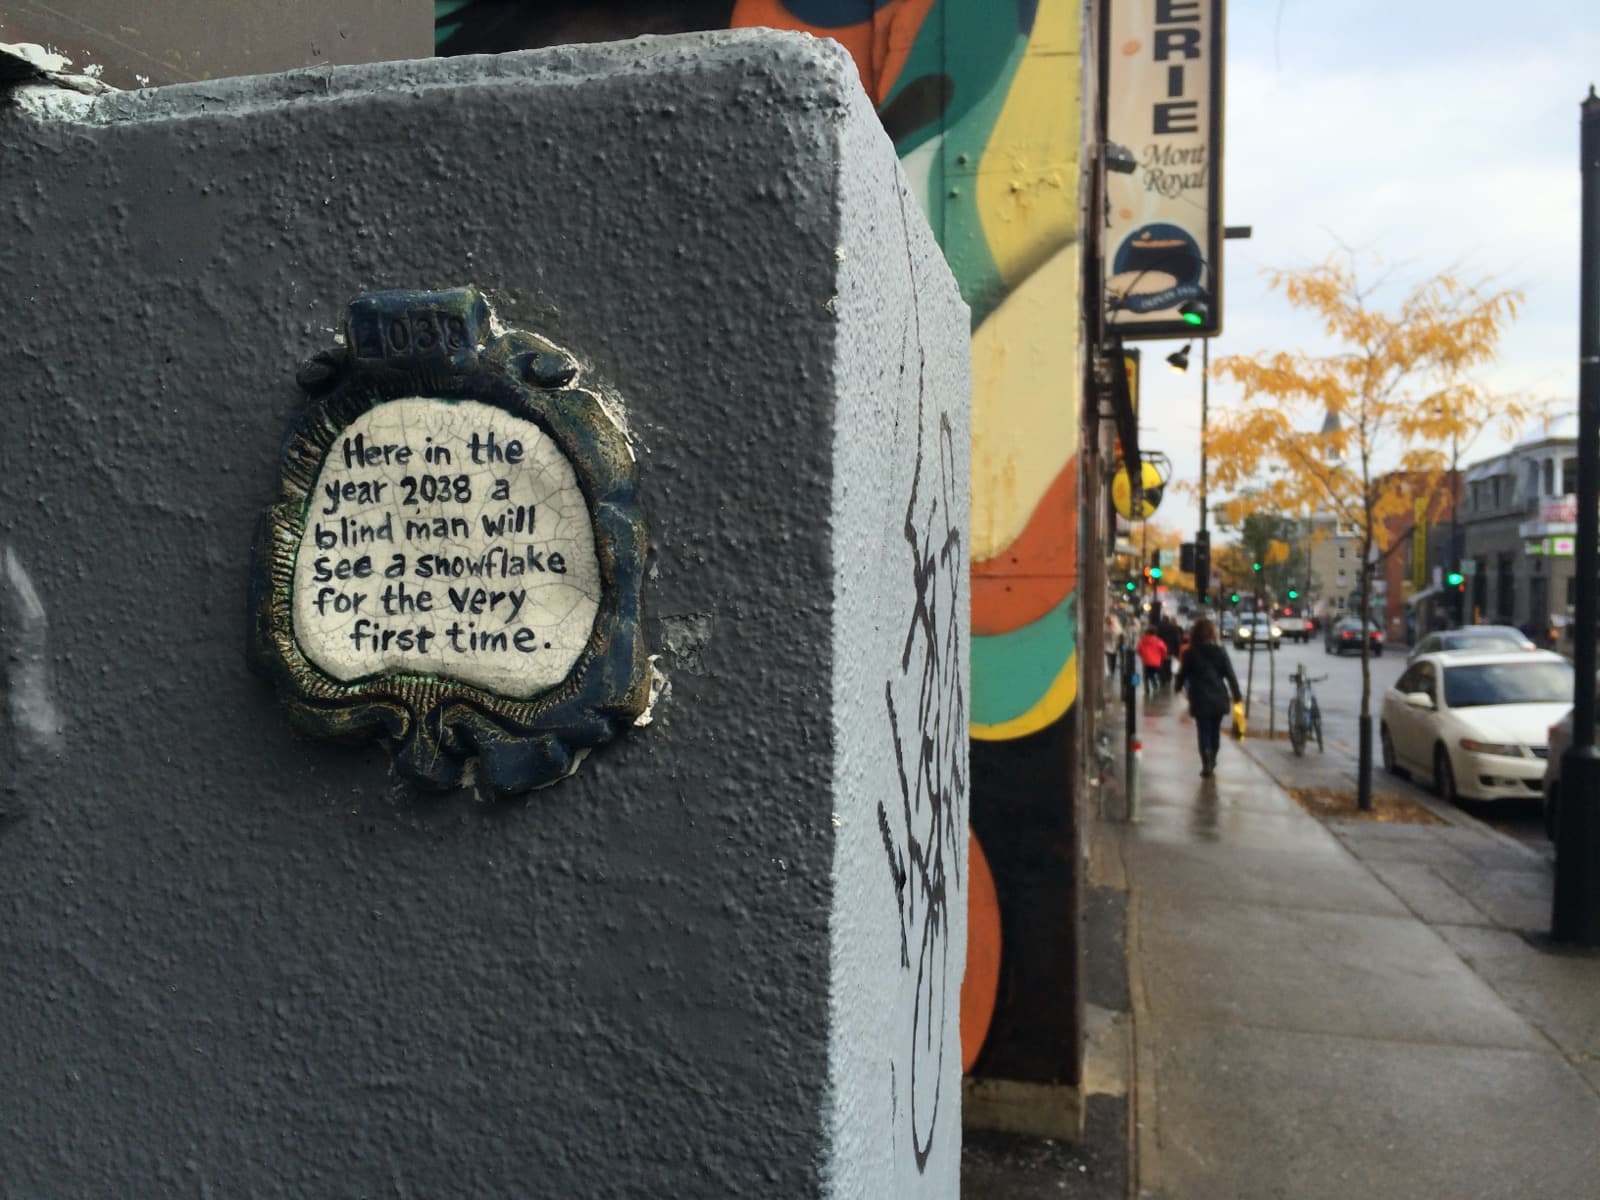 2038
Here in the
year 2038 a
blind man will
see a snowflake
for the very
first time.
ERIE
Mont
Royal